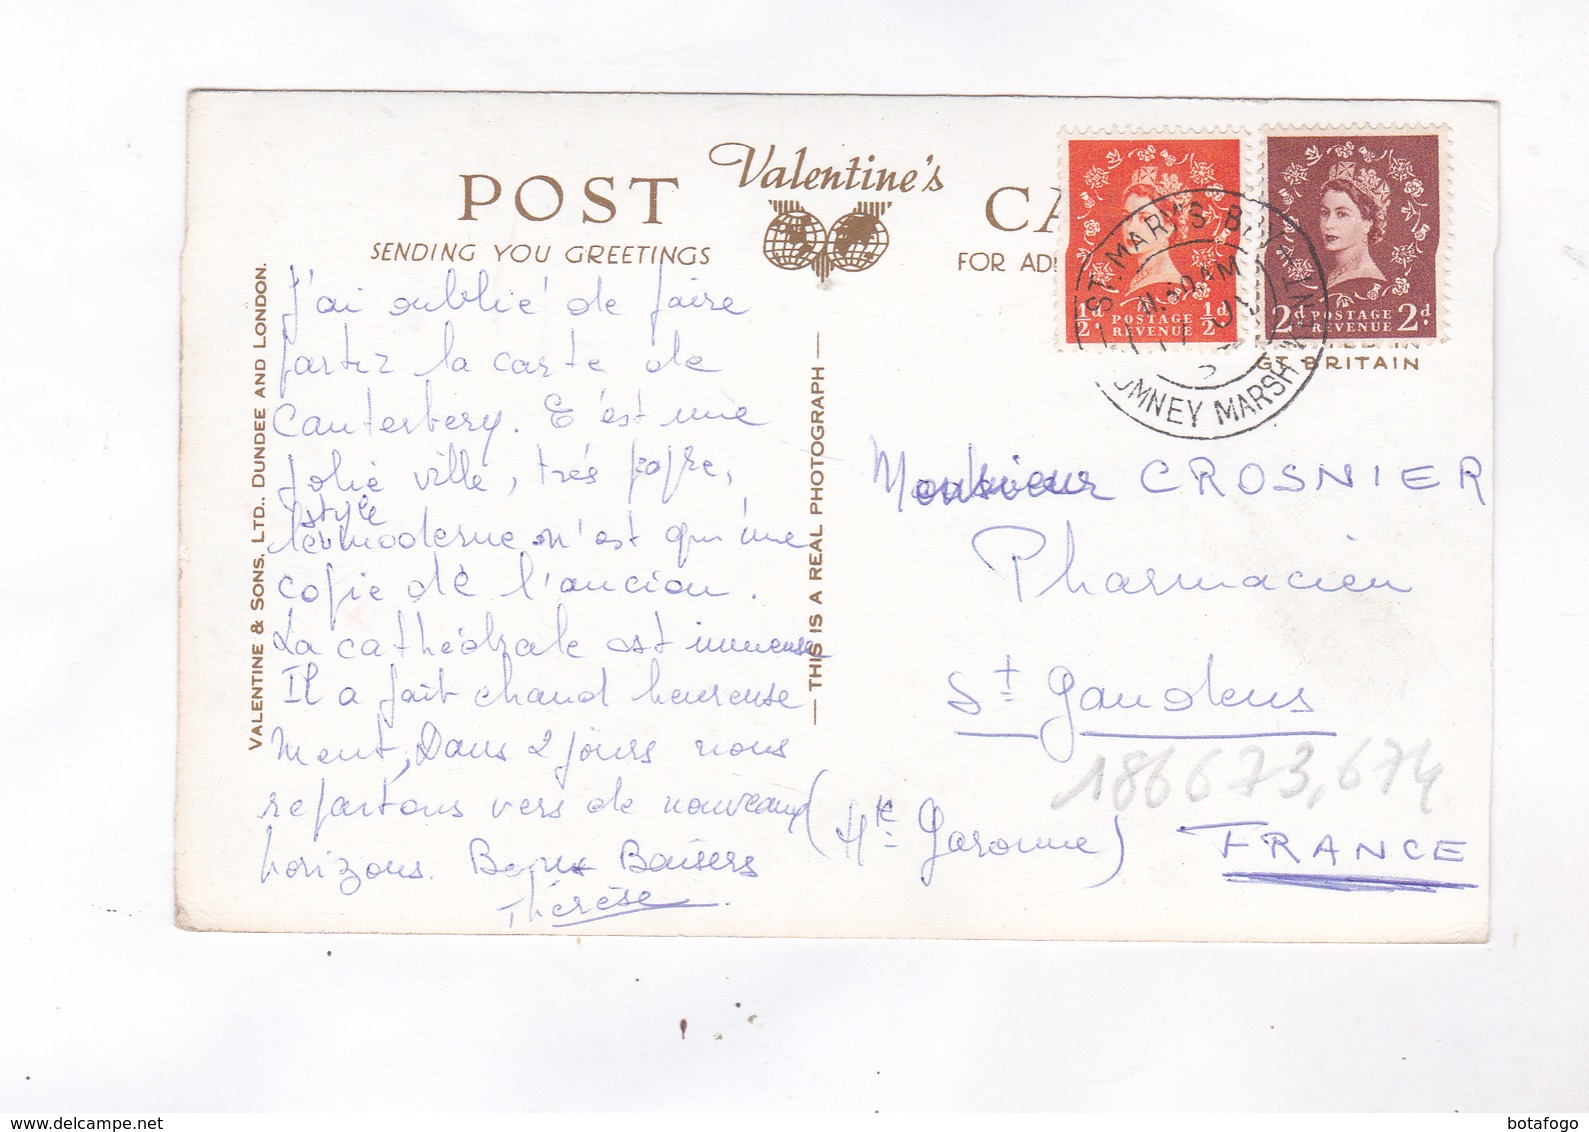 POST
Valentine's
SENDING YOU GREETINGS
FOR AD
GT BRITAIN
ST. MARY'S BAY
ROMNEY MARSH
1/2d POSTAGE REVENUE 1/2d
2d POSTAGE REVENUE 2d
VALENTINE & SONS, LTD., DUNDEE AND LONDON.
THIS IS A REAL PHOTOGRAPH
J'ai oublié de faire
partir la carte de
Canterbery. C'est une
jolie ville, très propre,
style
moderne n'est qu'une
copie de l'ancien.
La cathédrale est immense
Il a fait chaud heureuse
ment, Dans 2 jours nous
repartons vers de nouveaux
horizons. Bons Baisers
Thérèse
Monsieur CROSNIER
Pharmacien
St Gaudens
186673,674
(Hte Garonne) FRANCE
botafogo